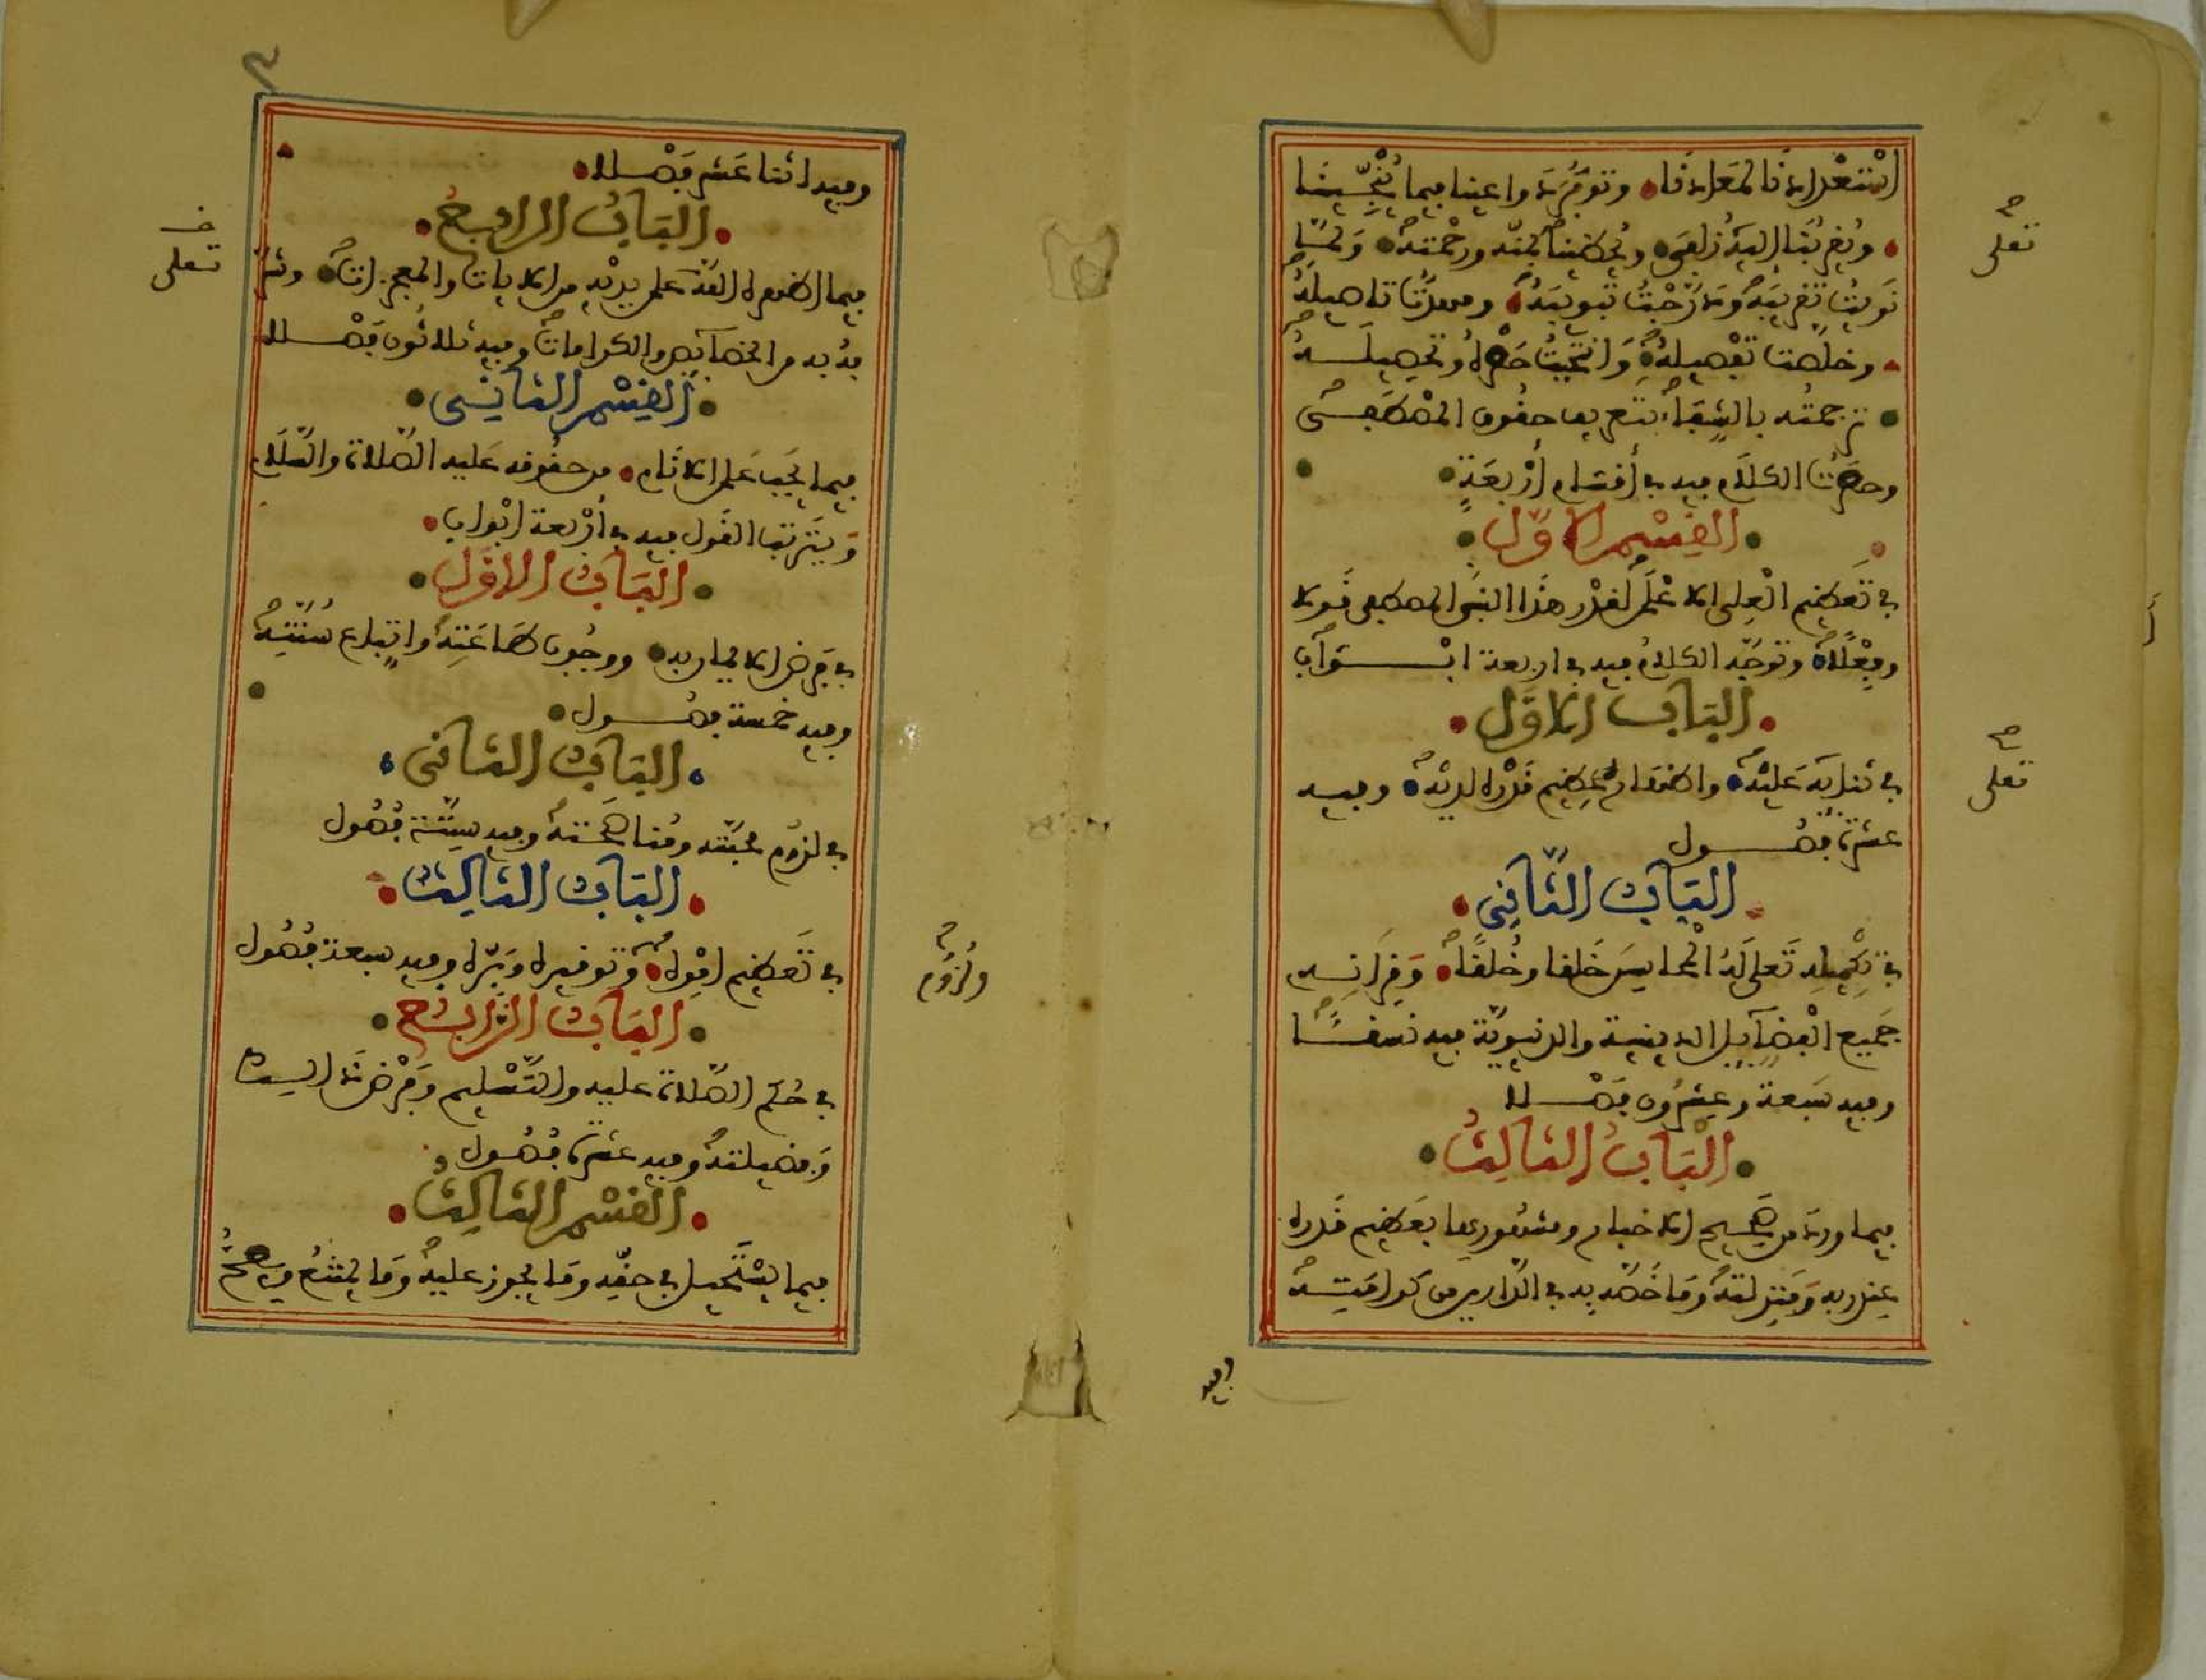 استعدادنا لمعادنا وتوفر دواعينا فيما ينجينا
ويقربنا إليه زلفى ويحظينا بمنه ورحمته ولما
نويت تقريبه ودرجت تبويبه ومهدت تاصيله
وخلصت تفصيله وانتحيت حصره وتحصيله
ترجمته بالشفا بتعريف حقوق المصطفى
وحصرت الكلام فيه في أقسام أربعة
القسم الاول
في تعظيم العلي الاعلى لقدر هذا النبي المصطفى قولا
وفعلا وتوجه الكلام فيه في اربعة ابواب
الباب الاول
في ثنايه عليه واظهاره عظيم قدره لديه وفيه
عشرة فصول
الباب الثاني
في تكميله تعلى له المحاسن خلقا وخلقا وقرانه
جميع الفضايل الدينية والدنيوية فيه نسقا
وفيه سبعة وعشرون فصلا
الباب الثالث
فيما ورد من صحيح الاخبار ومشهورها بعظيم قدره
عند ربه ومنزلته وما خصه به في الدارين من كرامته
وفيه
تعلى
تعلى
٣
وفيه اثنا عشر فصلا
الباب الرابع
فيما اظهره الله على يديه من الايات والمعجزات وشر
فه به من الخصايص والكرامات وفيه ثلاثون فصلا
القسم الثاني
فيما يجب على الانام من حقوقه عليه الصلاة والسلام
ويترتب القول فيه في أربعة ابواب
الباب الاول
في فرض الايمان به ووجوب طاعته واتباع سنته
وفيه خمسة فصول
الباب الثاني
في لزوم محبته ومناصحته وفيه ستة فصول
الباب الثالث
في تعظيم امره وتوقيره وبره وفيه سبعة فصول
الباب الرابع
في حكم الصلاة عليه والتسليم وفرض ذلك
وفضيلته وفيه عشرة فصول
القسم الثالث
فيما يستحيل في حقه وما يجوز عليه وما يمتنع ويصح
تعلى
ولزوم